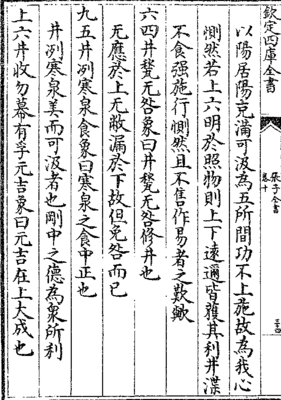 欽定四庫全書
張子全書
卷十
三四
以陽居陽克滿可汲為五所間功不上施故為我心
惻然若上六明於照物則上下遠邇皆獲其利井渫
不食强施行惻然且不售作易者之歎歟
六四井甃无咎象曰井甃无咎修井也
无應於上无敝漏於下故但免咎而已
九五井冽寒泉食象曰寒泉之食中正也
井冽寒泉美而可汲者也剛中之德為衆所利
上六井收勿幕有孚元吉象曰元吉在上大成也